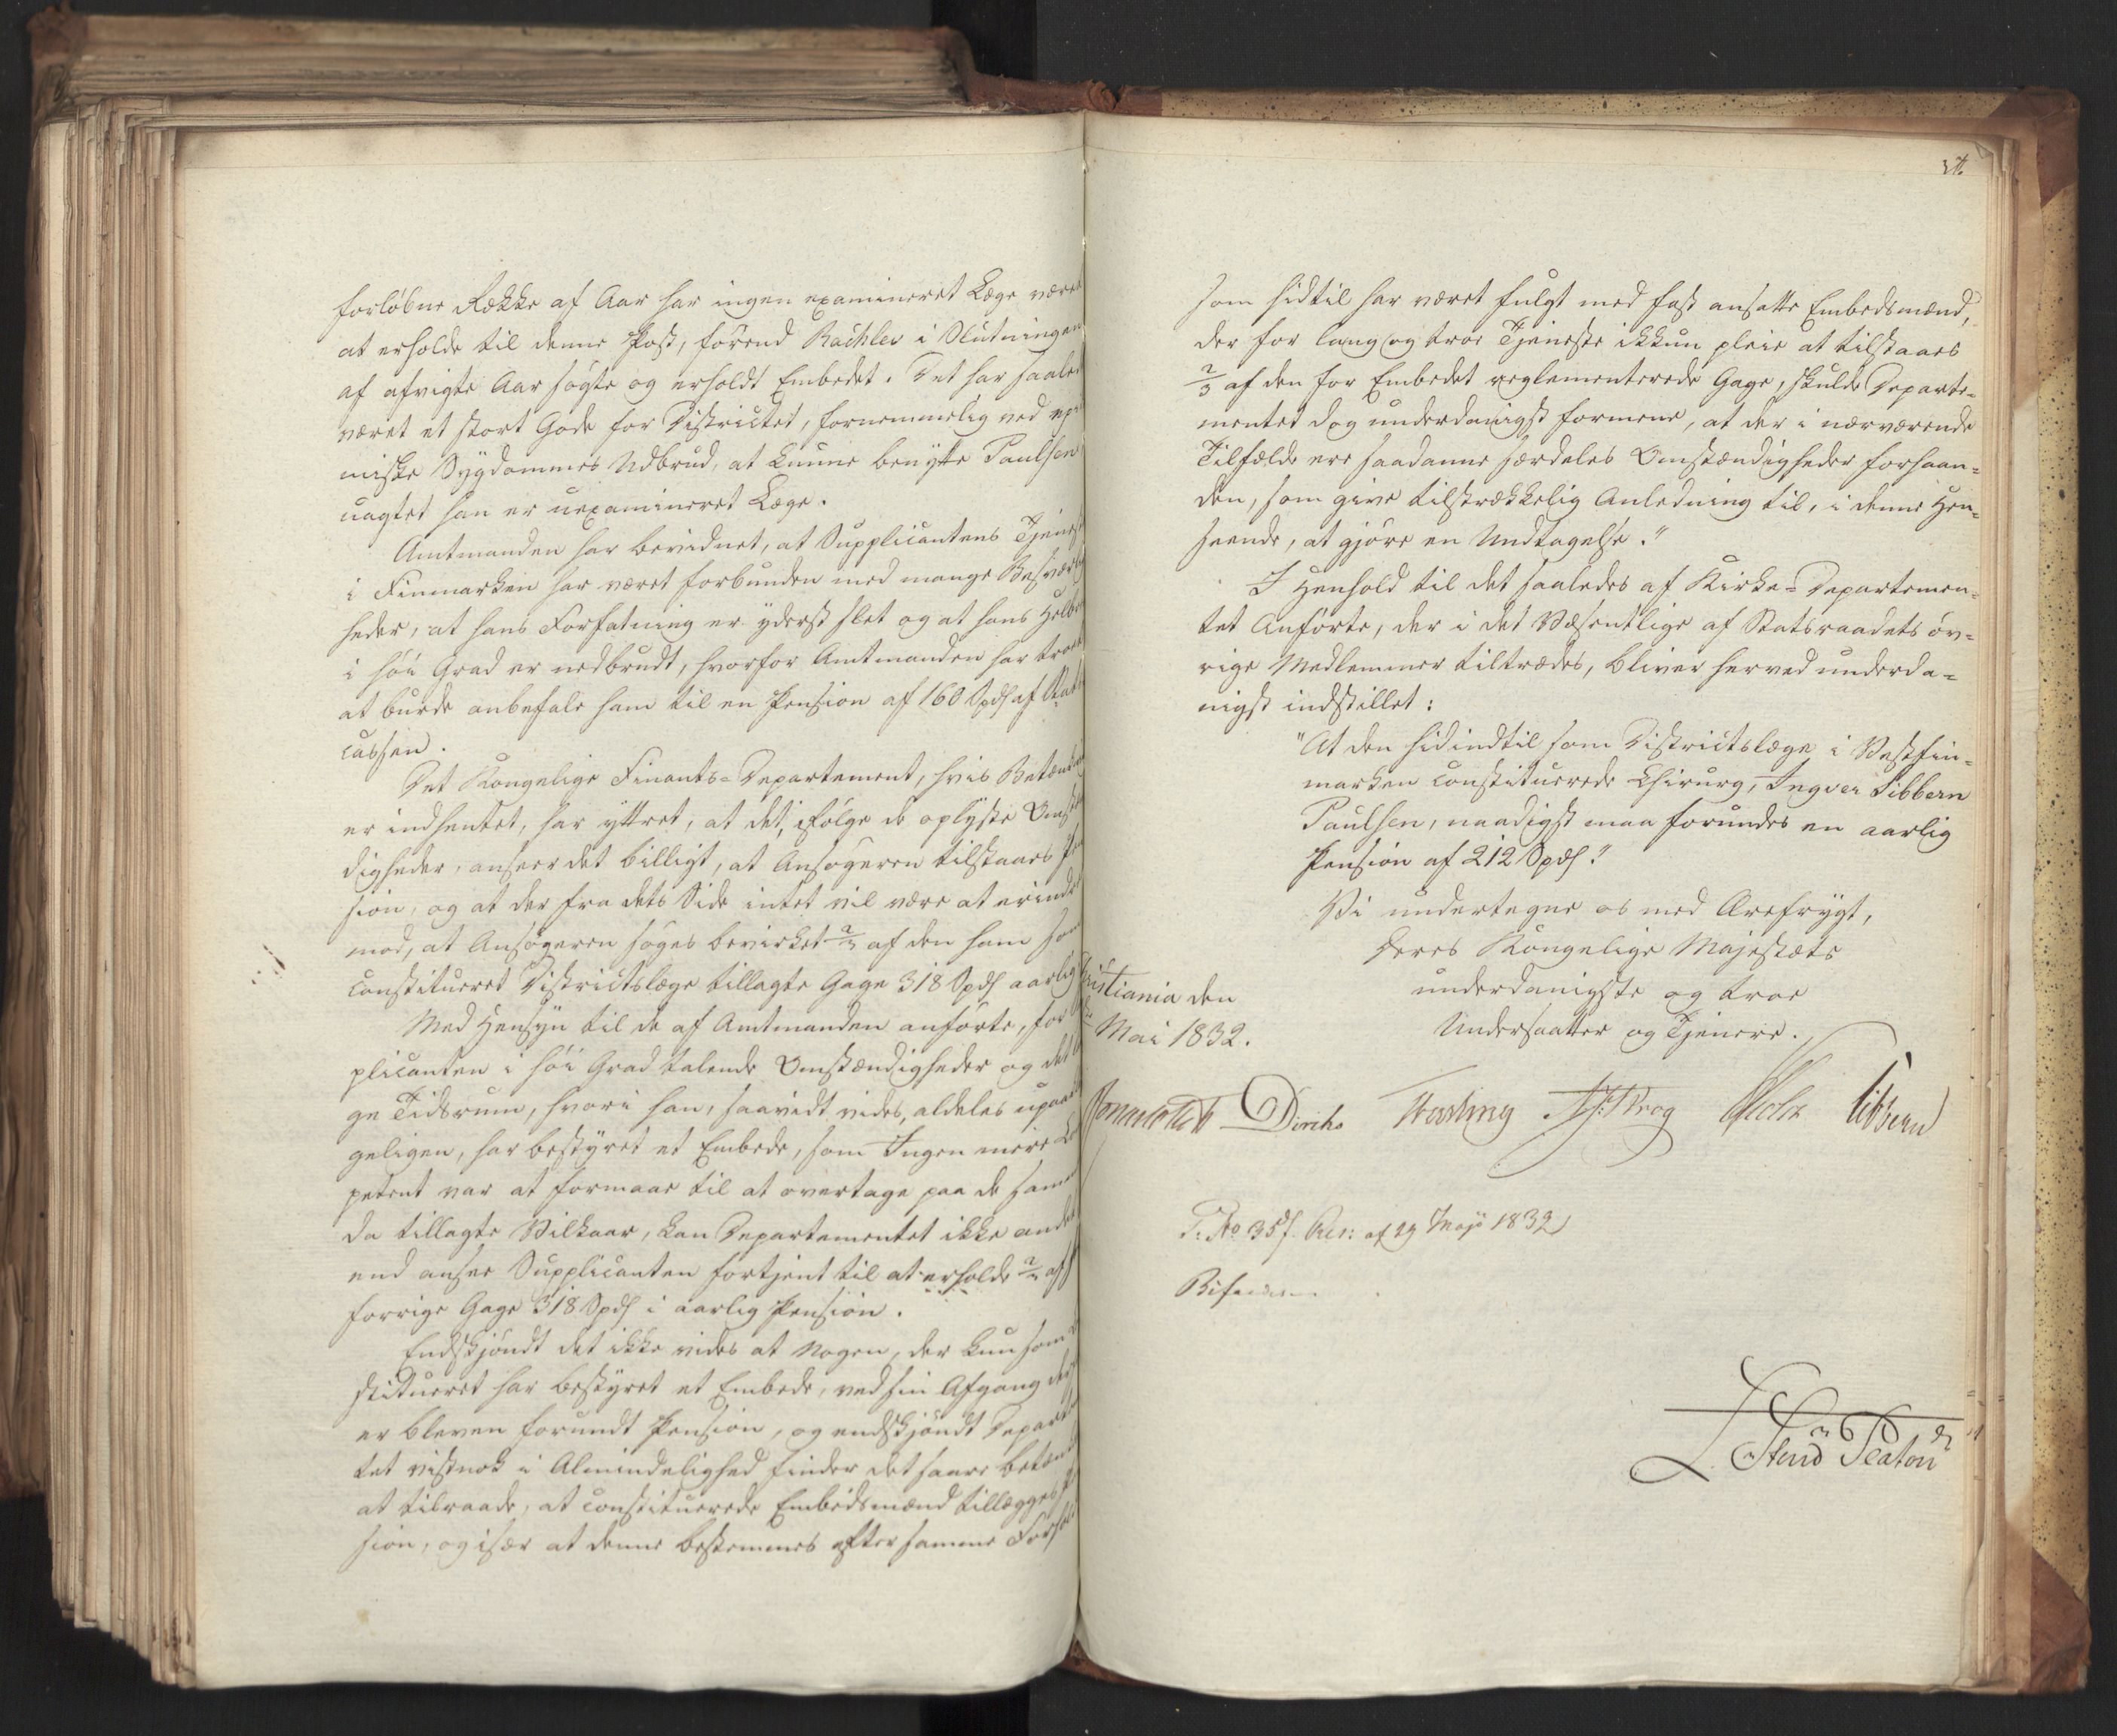 forløbne Række af Aar har ingen examineret Læge været
at erholde til denne Post, førend Rachlev i Slutningen
af afvigte Aar søgte og erholdt Embedet. Det har saale
været et stort Gode for Districtet, fornemmelig ved epi
miske Sygdommes Udbrud, at kunne benytte Paulsen
uagtet han er uexamineret Læge.
Amtmanden har bevidnet, at Supplicantens Tjenest
i Finmarken har været forbunden med mange Besværlig
heder, at hans Forfatning er yderst slet og at hans Helbre
i høi Grad er nedbrudt, hvorfor Amtmanden har troet
at burde anbefale ham til en Pension af 160 Spd af Stats
cassen.
Det Kongelige Finants-Departement, hvis Betænkn
er indhentet, har yttret, at det, ifølge de oplyste Omst
digheder, anseer det billigt, at Ansøgeren tilstaaes Pen
sion, og at der fra dets Side intet vil være at erindre
mod, at Ansøgeren søges bevirket 2/3 af den ham som
constitueret Districtslæge tillagte Gage 318 Spd aarlig
Med Hensyn til de af Amtmanden anførte, for
plicanten i høi Grad talende Omstændigheder og det
ge Tidsrum, hvori han, saavidt vides, aldeles upaa
geligen, har bestyret et Embede, som Ingen mere Co
petent var at formaae til at overtage paa de samme
da tillagte Vilkaar, kan Departementet ikke andet
end ansee Supplicanten fortjent til at erholde 2/3 af
forrige Gage 318 Spd i aarlig Pension.
Endskjøndt det ikke vides at Nogen, der kun som
stitueret har bestyret et Embede, ved sin Afgang der
er bleven forundt Pension, og endskjøndt Depart
tet vistnok i Almindelighed finder det saare betænk
at tilraade, at constituerede Embedsmænd tillægges
sion, og især at denne bestemmes efter samme Forhol
som hidtil har været fulgt med fast ansatte Embedsmænd,
der for lang og troe Tjeneste ikkun pleie at tilstaaes
2/3 af den for Embedet reglementerede Gage, skulde Departe-
mentet dog underdanigst formene, at der i nærværende
Tilfælde ere saadanne særdeles Omstændigheder forhaan-
den, som give tilstrækkelig Anledning til, i denne Hen-
seende, at gjøre en Undtagelse."
I Henhold til det saaledes af Kirke-Departemen-
tet Anførte, der i det Væsentlige af Statsraadets øv-
rige Medlemmer tiltrædes, bliver herved underda-
nigst indstillet:
"At den hidindtil som Districtslæge i Vestfin-
marken constituerede Chirurg, Ingver Sibbern
Paulsen, naadigst maa forundes en aarlig
Pension af 212 Spd."
Vi undertegne os med Ærefrygt,
Deres Kongelige Majestæts
underdanigste og troe
Undersaatter og Tjenere.
ristiania den
Mai 1832.
Diriks Fasting Krog Holst Sibbern
Res: af 29 Maji 1832